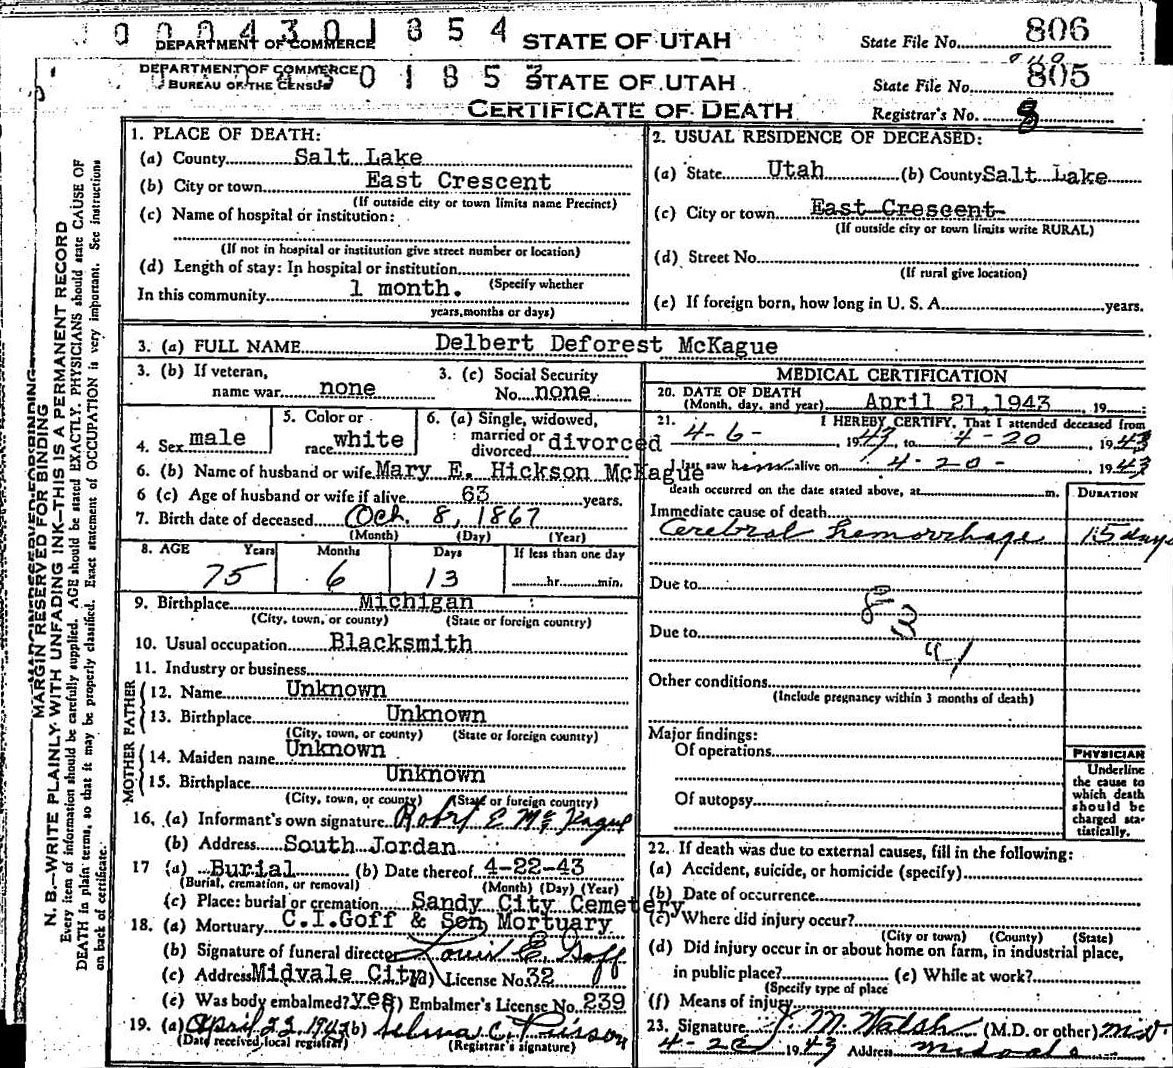 0 0 0 4 3 0 1 8 5 4
DEPARTMENT OF COMMERCE STATE OF UTAH State File No. 806
DEPARTMENT OF COMMERCE 3 0 1 8 5 3 STATE OF UTAH State File No. 805
BUREAU OF THE CENSUS
CERTIFICATE OF DEATH Registrar's No. 8
MARGIN RESERVED FOR BINDING
N. B.—WRITE PLAINLY WITH UNFADING INK—THIS IS A PERMANENT RECORD
Every item of information should be carefully supplied. AGE should be stated EXACTLY. PHYSICIANS should state CAUSE OF
DEATH in plain terms, so that it may be properly classified. Exact statement of OCCUPATION is very important. See instructions
on back of certificate.
1. PLACE OF DEATH:
(a) County Salt Lake
(b) City or town East Crescent
(If outside city or town limits name Precinct)
(c) Name of hospital or institution:
(If not in hospital or institution give street number or location)
(d) Length of stay: In hospital or institution
(Specify whether
In this community 1 month.
years, months or days)
2. USUAL RESIDENCE OF DECEASED:
(a) State Utah (b) County Salt Lake
(c) City or town East Crescent
(If outside city or town limits write RURAL)
(d) Street No.
(If rural give location)
(e) If foreign born, how long in U. S. A. years.
3. (a) FULL NAME Delbert Deforest McKague
3. (b) If veteran, 3. (c) Social Security
name war none No. none
4. Sex male
5. Color or
race white
6. (a) Single, widowed,
married or
divorced divorced
6. (b) Name of husband or wife Mary E. Hickson McKague
6 (c) Age of husband or wife if alive 63 years.
7. Birth date of deceased Oct. 8, 1867
(Month) (Day) (Year)
8. AGE Years Months Days If less than one day
75 6 13 hr. min.
9. Birthplace Michigan
(City, town, or county) (State or foreign country)
10. Usual occupation Blacksmith
11. Industry or business
FATHER
12. Name Unknown
13. Birthplace Unknown
(City, town, or county) (State or foreign country)
MOTHER
14. Maiden name Unknown
15. Birthplace Unknown
(City, town, or county) (State or foreign country)
16. (a) Informant's own signature Robert E McKague
(b) Address South Jordan
17 (a) Burial (b) Date thereof 4-22-43
(Burial, cremation, or removal) (Month) (Day) (Year)
(c) Place: burial or cremation Sandy City Cemetery
18. (a) Mortuary C.I.Goff & Son Mortuary
(b) Signature of funeral director Louis E. Goff
(c) Address Midvale City (d) License No. 32
(e) Was body embalmed? yes (f) Embalmer's License No. 239
19. (a) April 22 1943 (b) Selma C.
(Date received local registrar) (Registrar's signature)
MEDICAL CERTIFICATION
20. DATE OF DEATH
(Month, day, and year) April 21, 1943, 19
21. I HEREBY CERTIFY, That I attended deceased from
4-6- 1943, to 4-20 1943
I last saw him alive on 4-20- 1943
death occurred on the date stated above, at m.
DURATION
Immediate cause of death
Cerebral hemorrhage 15 days
Due to
83
Due to
a/
Other conditions
(Include pregnancy within 3 months of death)
Major findings:
Of operations
Of autopsy
PHYSICIAN
Underline
the cause to
which death
should be
charged sta-
tistically.
22. If death was due to external causes, fill in the following:
(a) Accident, suicide, or homicide (specify)
(b) Date of occurrence
(c) Where did injury occur?
(City or town) (County) (State)
(d) Did injury occur in or about home on farm, in industrial place,
in public place? (e) While at work?
(Specify type of place
(f) Means of injury
23. Signature J. M. Walsh (M.D. or other) M.D.
1943 Address Midvale